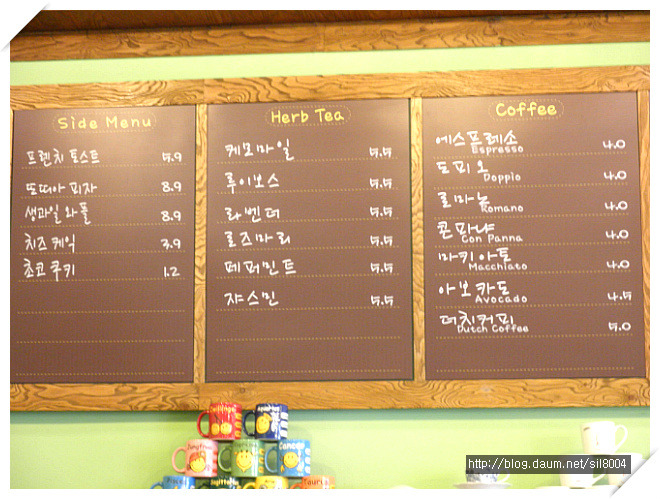 Side Menu
프렌치 토스트 5.9
또띠아 피자 8.9
생과일 와플 8.9
치즈 케익 3.9
초코 쿠키 1.2
Herb Tea
케모마일 5.5
루이보스 5.5
라벤더 5.5
로즈마리 5.5
페퍼민트 5.5
쟈스민 5.5
Coffee
에스프레소 4.0
Espresso
도피오 4.0
Doppio
로마노 4.0
Romano
콘파냐 4.0
Con Panna
마키아토 4.0
Macchiato
아보카도 4.5
Avocado
더치커피 5.0
Dutch Coffee
Aquarius
Cancer
Sagittarius
Taurus
http://blog.daum.net/sil8004